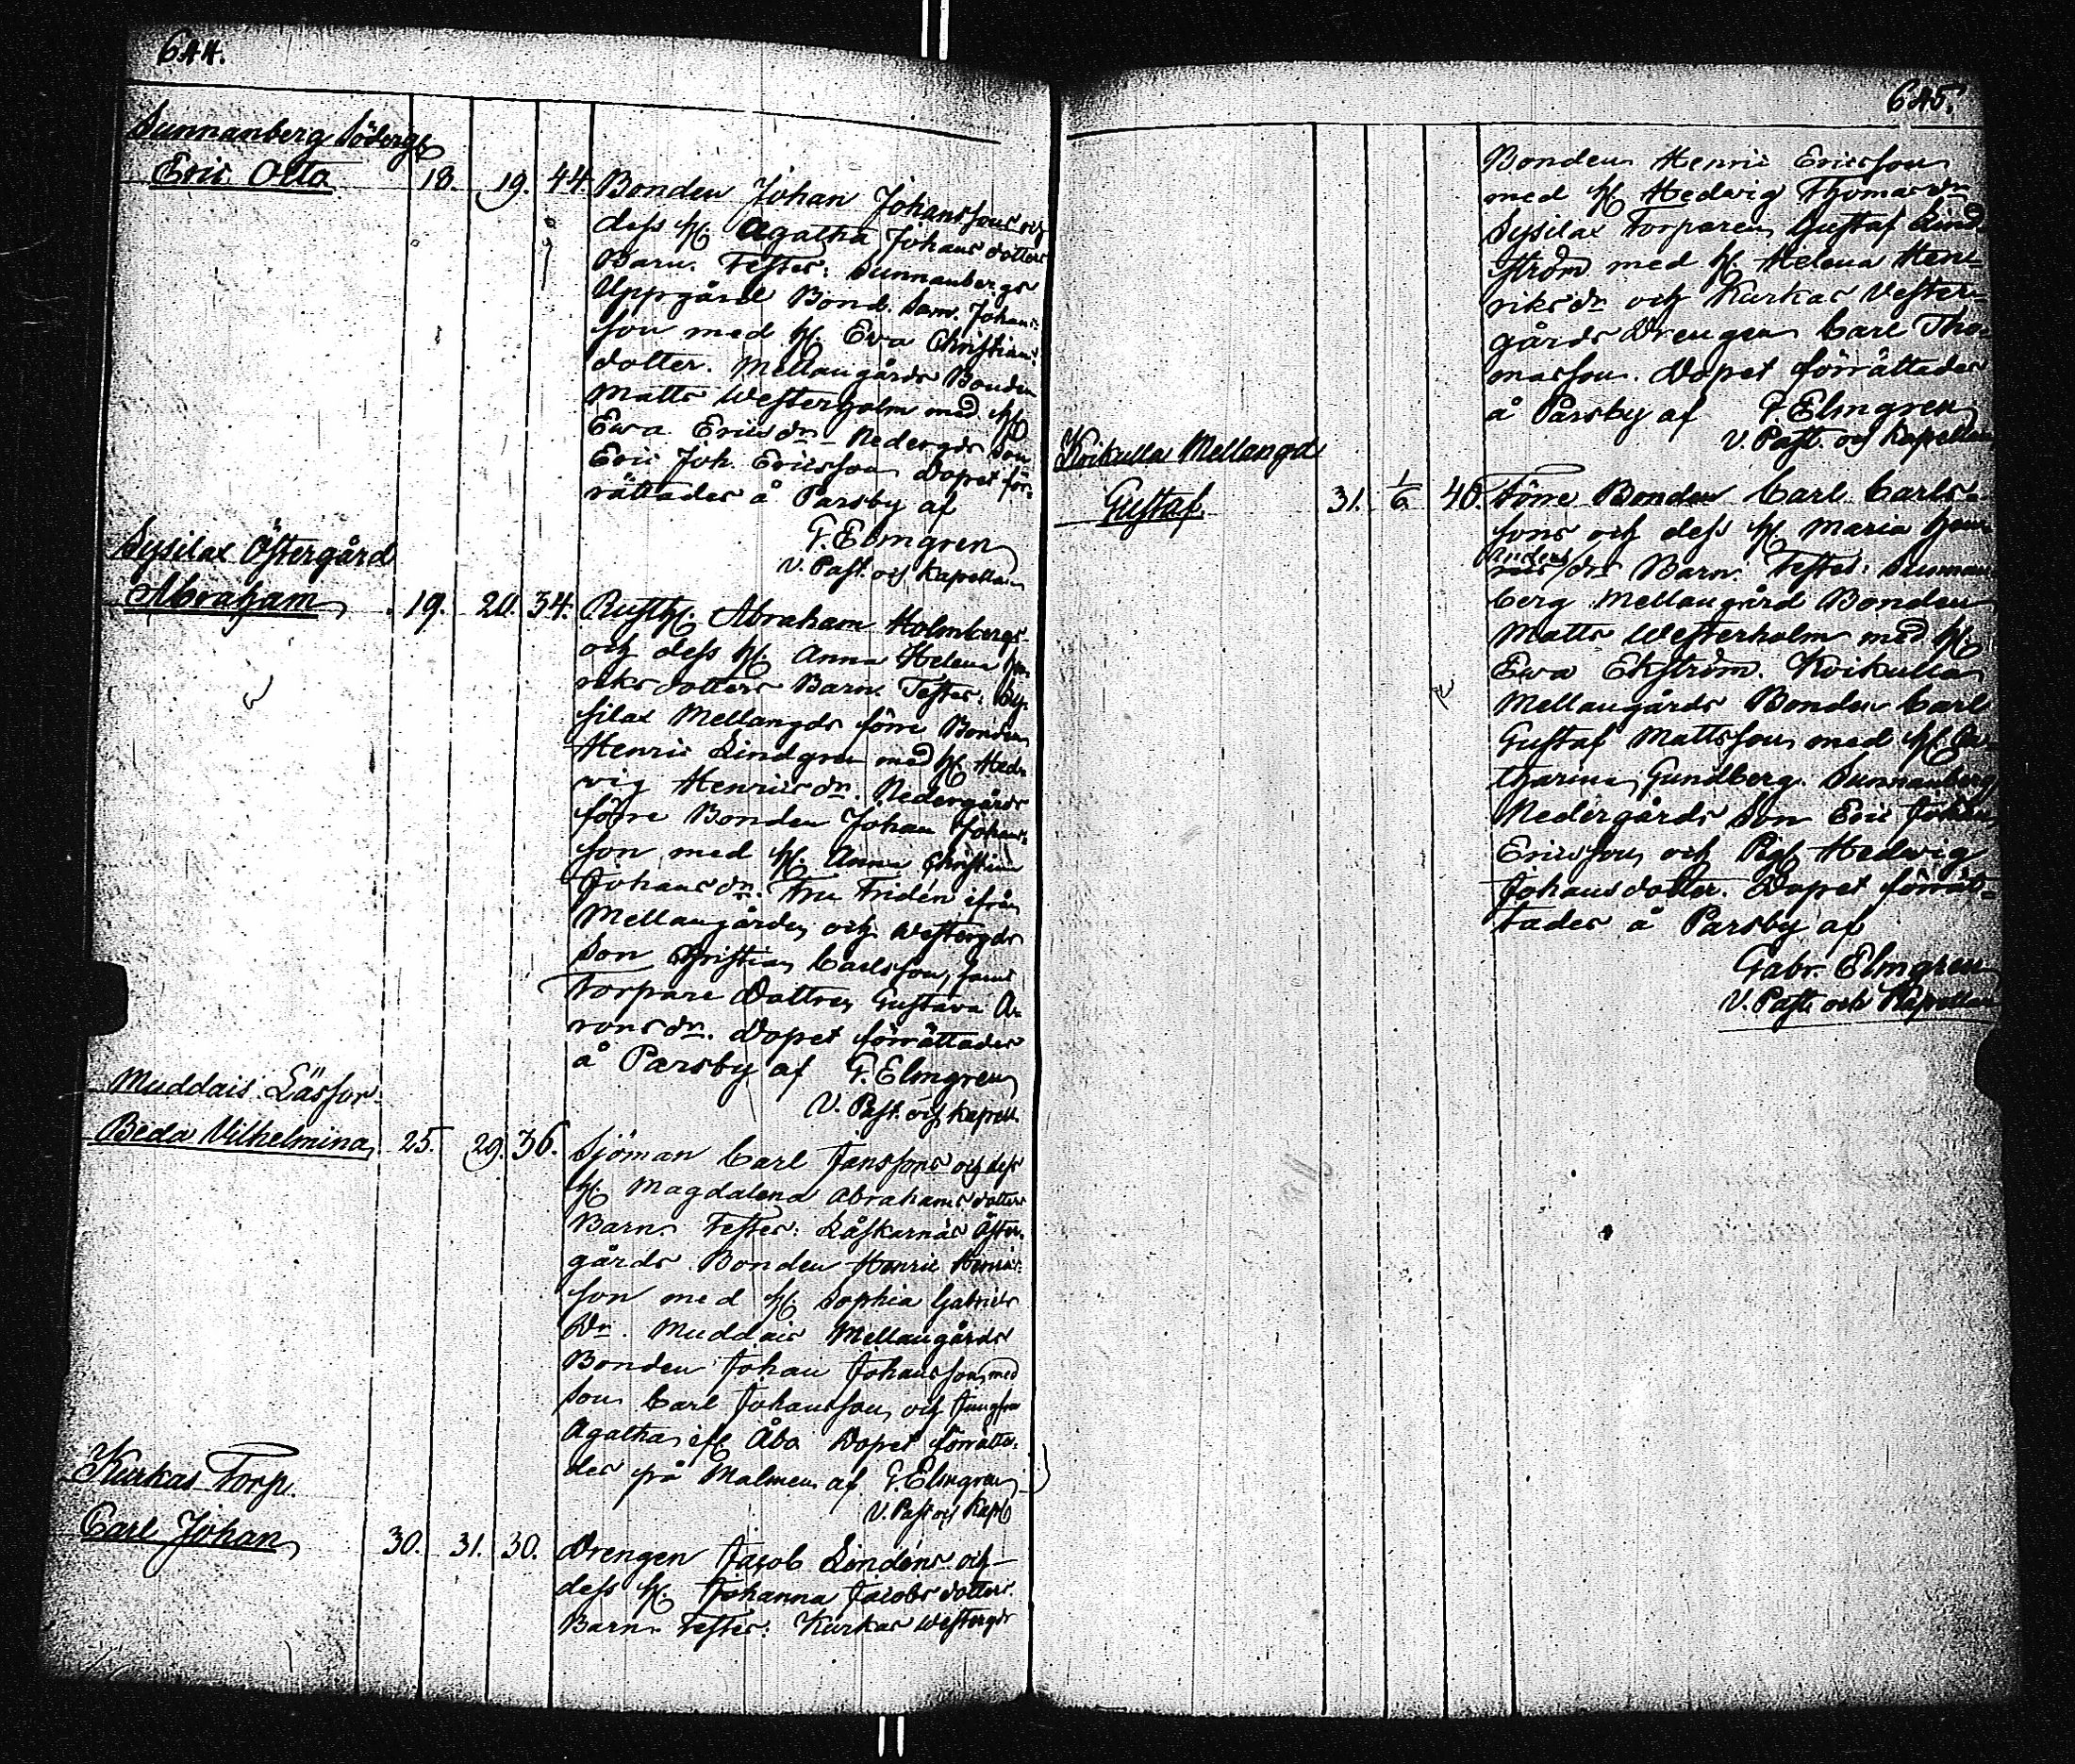 644.
Sunnanberg Söderg
Eric Otto 18. 19. 44. Bonden Johan Johanssons och
dess H. Agatha Johans dotters
Barn. Testes: Sunnanbergs
Uppgård Bond. Sam. Johans=
son med H. Eva Christians
dotter. Mellangårds Bonden
Matts Westerholm med H.
Ewa Ericsdr Nedergds Son
Eric Joh. Ericsson Dopet för=
rättades å Parsby af
G. Elmgren
V. Past. och Kapellan
Sysilax Östergård
Abraham 19. 20. 34. Rusth. Abraham Holmbergs
och dess H. Anna Helena Hen
riks dotters Barn. Testes: Sy-
silax Mellangds förre Bonden
Henric Lindgren med H. Hed-
vig Henricsdr. Nedergårds
förre Bonden Johan Johans-
son med H. Anna Christina
Johansdr. Fru Fridén ifrån
Mellangården och Westergds
Son Christian Carlsson, samt
Torpare Dottren Gustava A-
ronsdr. Dopet förrättades
å Parsby af G. Elmgren
V. Past. och Kapell.
Muddais Läsfor
Beda Vilhelmina 25. 29. 36. Sjöman Carl Janssons och dess
H. Magdalena Abrahams dotters
Barn. Testes: Låskarnäs Öster-
gårds Bonden Henric Henrics-
son med H. Sophia Gabriels
Dr. Muddais Mellangårds
Bonden Johan Johansson, med
Son Carl Johansson, och Jungfru
Agatha, ifr Åbo Dopet förrätta-
des på Malmen af G. Elmgren
V. Past och Kapl
Kurkas Torp.
Carl Johan 30. 31. 30. Drengen Jacob Lindéns och
dess H. Johanna Jacobs dotters
Barn. Testes: Kurkas Westergds
645.
Bonden Henric Ericsson
med H. Hedwig Thomasdr
Sysilax Torparen Gustaf Lind-
ström med H. Helena Hen-
riksdr och Kurkas Vester-
gårds Drengen Carl Tho-
masson. Dopet förrättades
å Parsby af G Elmgren
V. Past. och Kapellan
Koikulla Mellangd
Gustaf. 31. 1/6 40. Förre Bonden Carl Carls-
sons och dess H. Maria
Anders
dr Barn. Testes: Sunnan
berg Mellangård Bonden
Matts Westerholm med H.
Ewa Ekström. Koikulla
Mellangårds Bonden Carl
Gustaf Mattsson med H. Ca-
tharina Gundberg. Sunnanberg
Nedergårds Son Eric Johan
Ericsson och Pig. Hedwig
Johansdotter. Dopet förrät-
tades å Parsby af
Gabr. Elmgren
V. Past. och Kapellan